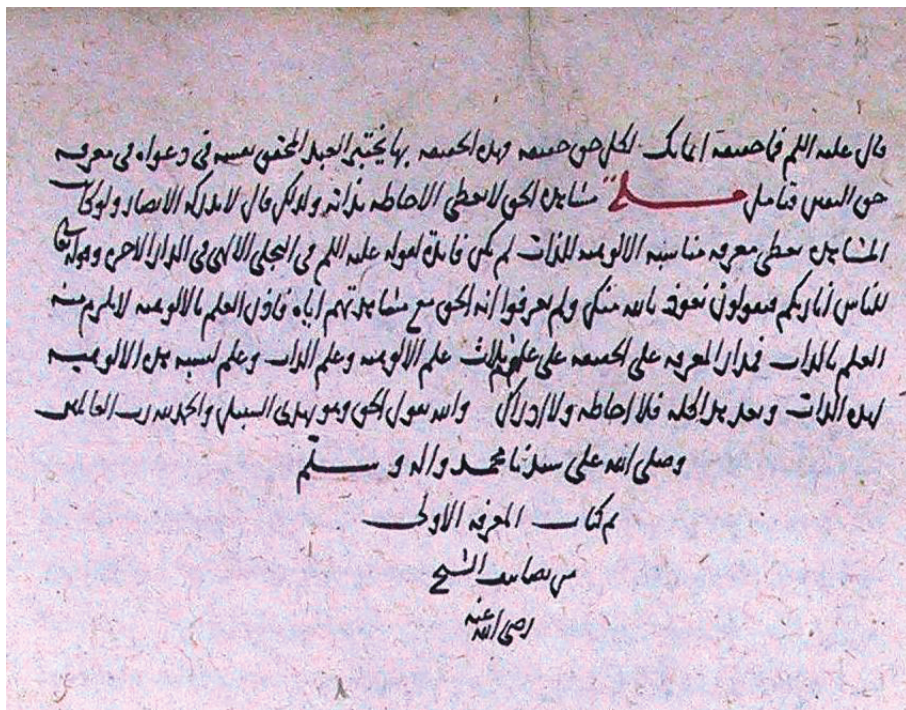 قال عليه السلم فما حقيقة ايمانك لكل حق حقيقة وهذه الحقيقة بها يختبر العبد المحقق نفسه في دعواه في معرفة
حق اليقين فتامل مسئلة مشاهدة الحق لا تعطي الاحاطة بذاته ولذلك قال لا تدركه الابصار ولو كانت
المشاهدة تعطي معرفة مناسبة الالوهية للذات لم تكن فايدة لقوله عليه السلم في التجلي الالهي في الدار الاخرة وقوله تعالى
للناس انا ربكم فيقولون نعوذ بالله منك ولم يعرفوا انه الحق مع مشاهدتهم اياه فاذن العلم بالالوهية لا يلزم منه
العلم بالذات فمدار المعرفة على الحقيقة على علوم ثلاث علم الالوهية وعلم الذات وعلم نسبة هذه الالوهية
لهذه الذات وبعد هذا كله فلا احاطة ولا ادراك والله يقول الحق وهو يهدي السبيل والحمد لله رب العالمين
وصلى الله على سيدنا محمد واله وسلم
تم كتاب المعرفة الاولى
من تصانيف الشيخ
رضي الله عنه